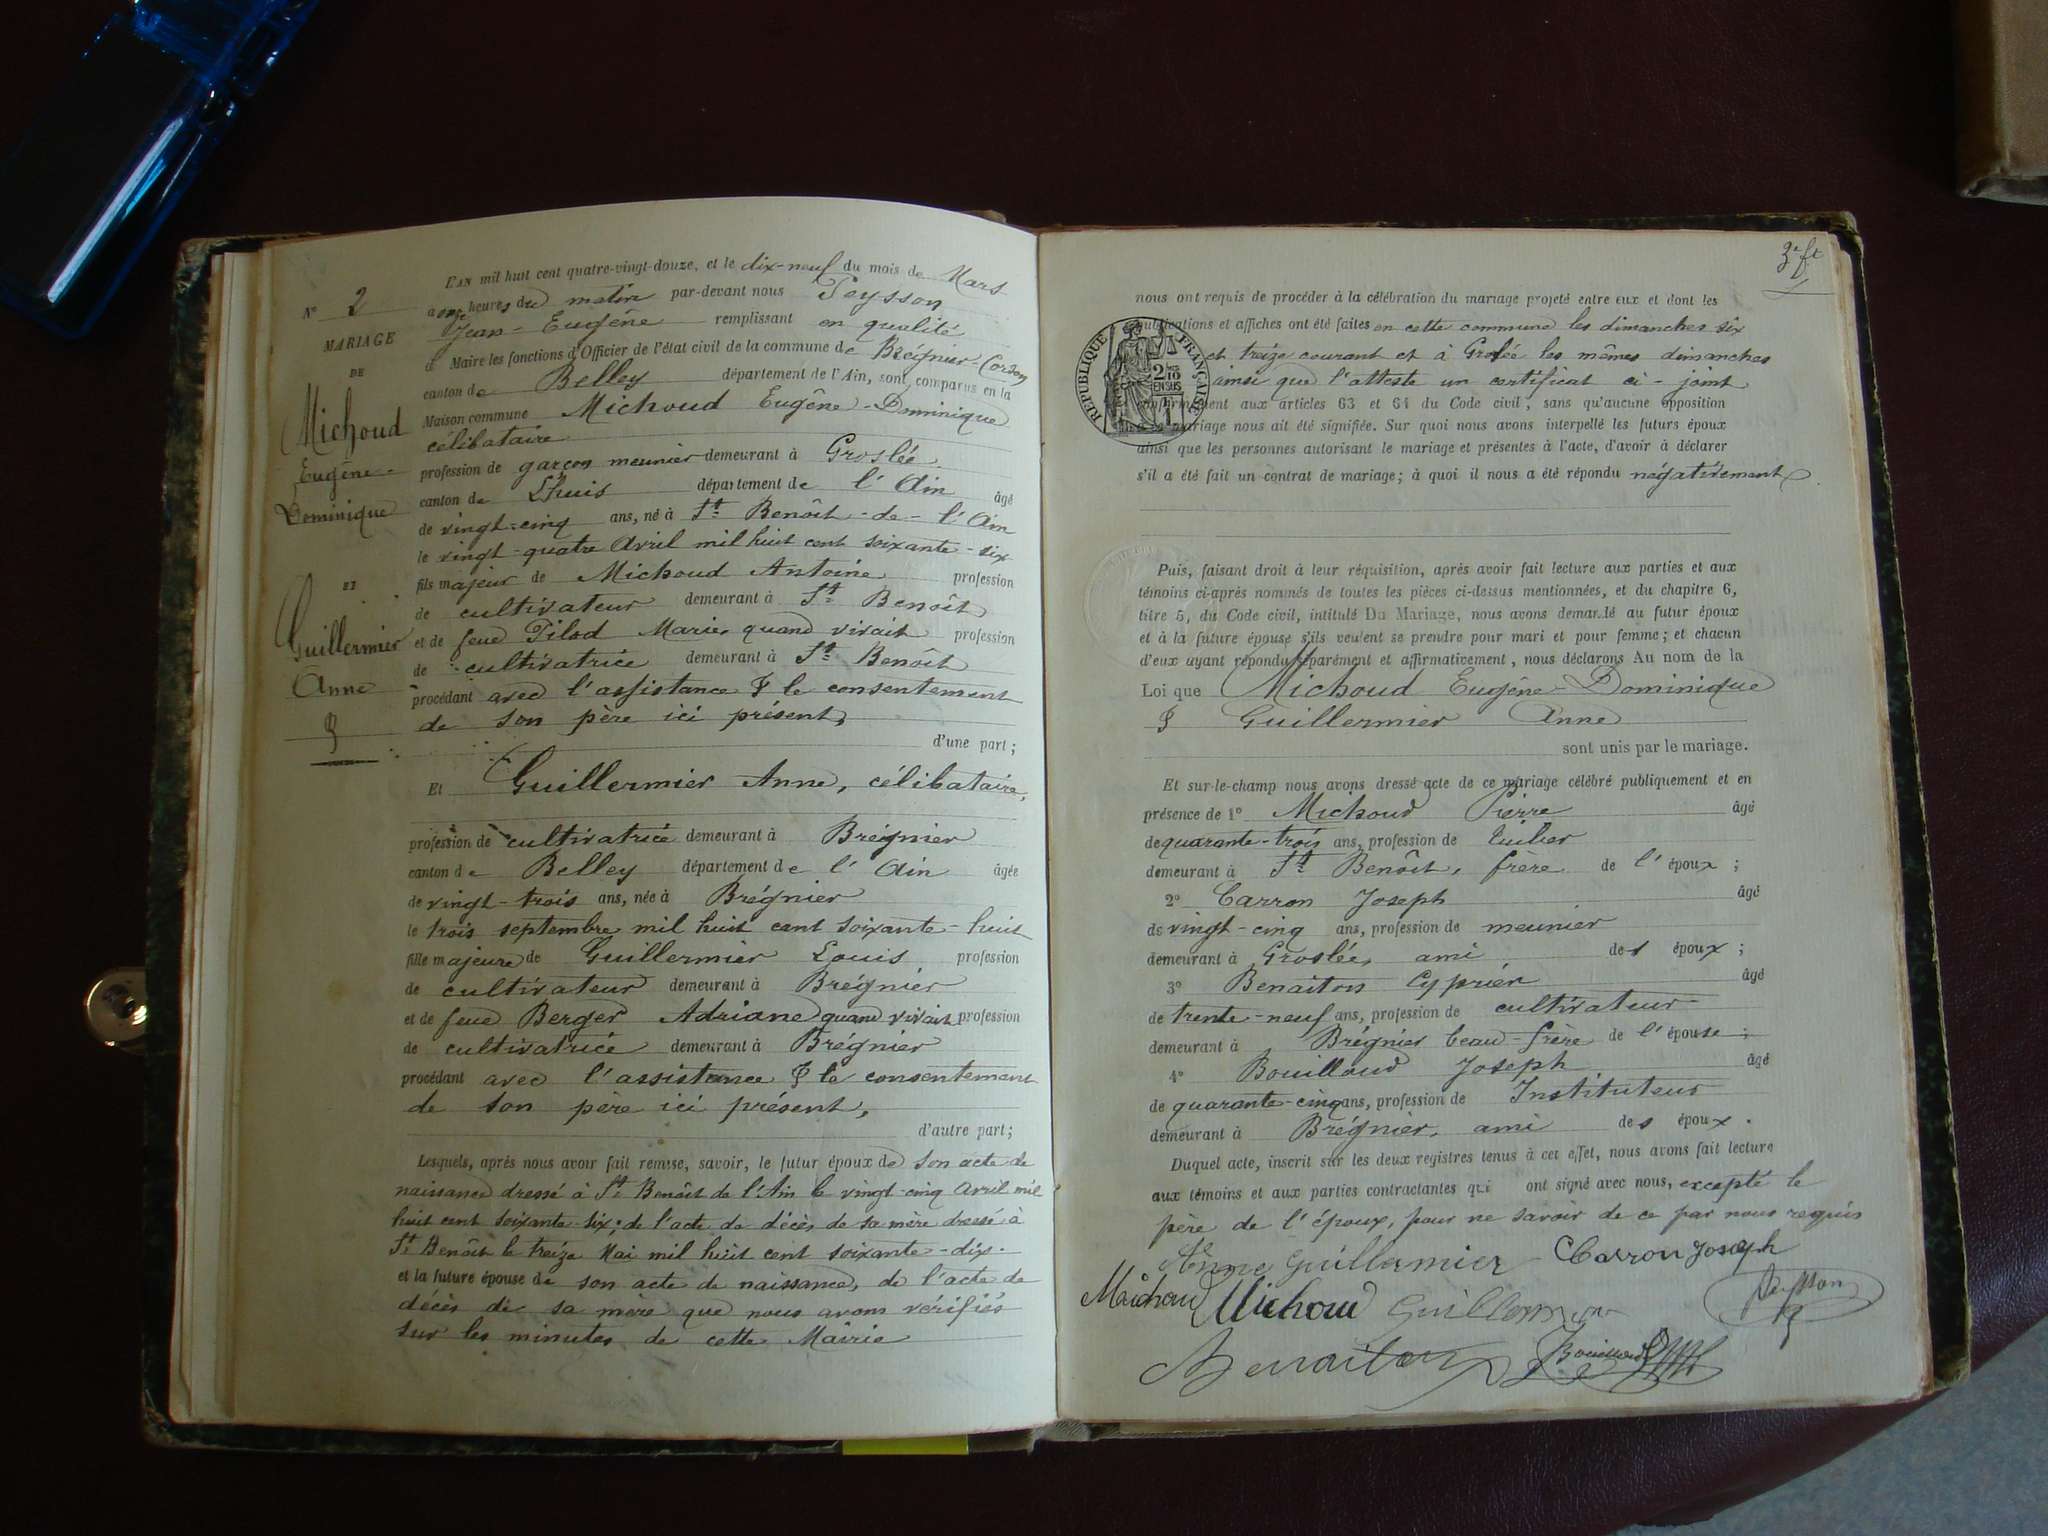 L'AN mil huit cent quatre-vingt-douze, et le dix-neuf du mois de Mars
N° 2
à onze heures du matin par-devant nous Peysson
Jean-Eugène remplissant en qualité
MARIAGE
d Maire les fonctions d'Officier de l'état civil de la commune de Brégnier-Cordon
DE
canton de Belley département de l'Ain, sont comparus en la
Michoud
Maison commune Michoud Eugène-Dominique
célibataire
Eugène-
profession de garçon meunier demeurant à Groslée
Dominique
canton de Lhuis département de l'Ain âgé
de vingt-cinq ans, né à St Benoît-de-l'Ain
le vingt-quatre Avril mil huit cent soixante-six
ET
fils majeur de Michoud Antoine profession
de cultivateur demeurant à St Benoît
Guillermier
et de feue Pilod Marie, quand vivait profession
de cultivatrice demeurant à St Benoît
Anne
procédant avec l'assistance & le consentement
de son père ici présent,
d'une part ;
Et Guillermier Anne, célibataire,
profession de cultivatrice demeurant à Brégnier
canton de Belley département de l'Ain âgée
de vingt-trois ans, née à Brégnier
le trois septembre mil huit cent soixante-huit
fille majeure de Guillermier Louis profession
de cultivateur demeurant à Brégnier
et de feue Berger Adriane quand vivait profession
de cultivatrice demeurant à Brégnier
procédant avec l'assistance & le consentement
de son père ici présent,
d'autre part ;
Lesquels, après nous avoir fait remise, savoir, le futur époux de son acte de
naissance dressé à St Benoît de l'Ain le vingt-cinq Avril mil
huit cent soixante-six; de l'acte de décès de sa mère dressé à
St Benoît le treize Mai mil huit cent soixante-dix.
et la future épouse de son acte de naissance, de l'acte de
décès de sa mère que nous avons vérifiés
sur les minutes de cette Mairie
3e ft
nous ont requis de procéder à la célébration du mariage projeté entre eux et dont les
publications et affiches ont été faites en cette commune les dimanches six
et treize courant et à Groslée les mêmes dimanches
ainsi que l'atteste un certificat ci-joint
RÉPUBLIQUE FRANÇAISE
2/10 EN SUS
conformément aux articles 63 et 64 du Code civil, sans qu'aucune opposition
mariage nous ait été signifiée. Sur quoi nous avons interpellé les futurs époux
ainsi que les personnes autorisant le mariage et présentes à l'acte, d'avoir à déclarer
s'il a été fait un contrat de mariage; à quoi il nous a été répondu négativement
Puis, faisant droit à leur réquisition, après avoir fait lecture aux parties et aux
témoins ci-après nommés de toutes les pièces ci-dessus mentionnées, et du chapitre 6,
titre 5, du Code civil, intitulé Du Mariage, nous avons demandé au futur époux
et à la future épouse s'ils veulent se prendre pour mari et pour femme ; et chacun
d'eux ayant répondu séparément et affirmativement, nous déclarons Au nom de la
Loi que Michoud Eugène-Dominique
& Guillermier Anne
sont unis par le mariage.
Et sur-le-champ nous avons dressé acte de ce mariage célébré publiquement et en
présence de 1° Michoud Pierre âgé
de quarante-trois ans, profession de tuilier
demeurant à St Benoît, frère de l'époux ;
2° Carron Joseph âgé
de vingt-cinq ans, profession de meunier
demeurant à Groslée, ami des époux ;
3° Benaiton Cyprien âgé
de trente-neuf ans, profession de cultivateur
demeurant à Brégnier beau-frère de l'épouse ;
4° Bouilloud Joseph âgé
de quarante-cinq ans, profession de Instituteur
demeurant à Brégnier, ami des époux.
Duquel acte, inscrit sur les deux registres tenus à cet effet, nous avons fait lecture
aux témoins et aux parties contractantes qui ont signé avec nous, excepté le
père de l'époux, pour ne savoir de ce par nous requis
Anne Guillermier Carron Joseph
Michoud Michoud Guillermier Peysson
Benaiton Bouilloud